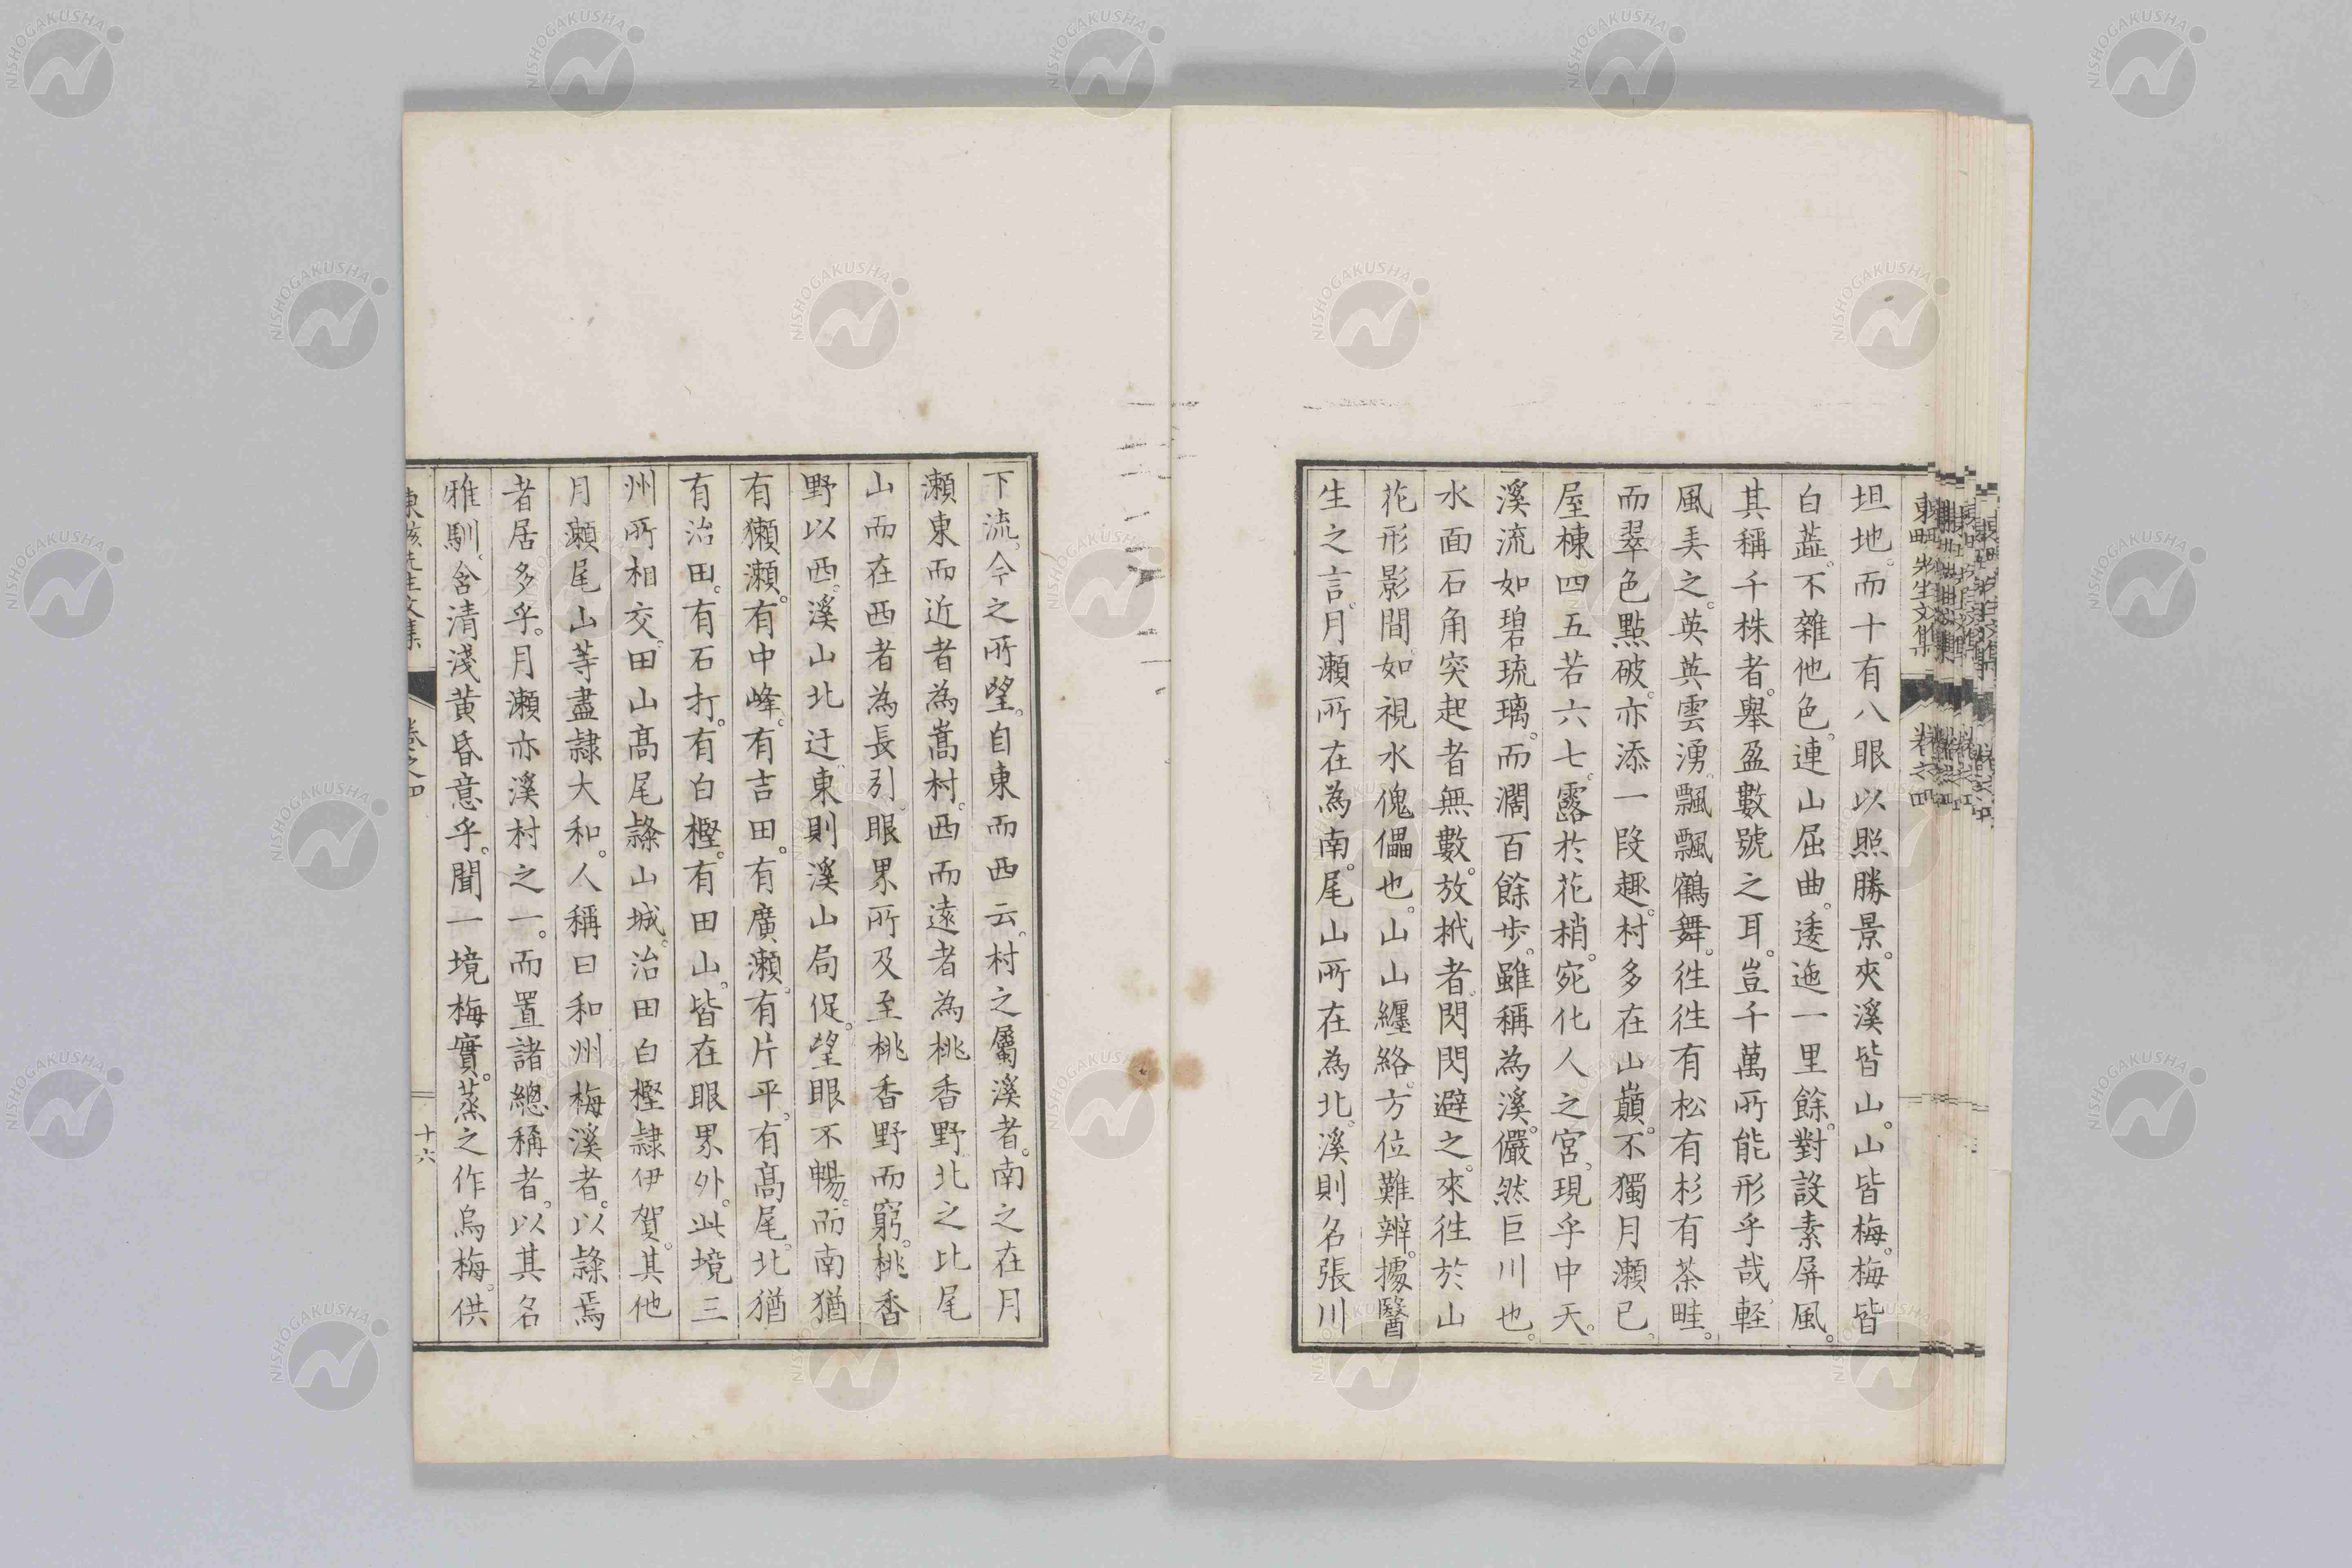 坦地。而十有八眼以照勝景。夾溪皆山。山皆梅。梅皆
白蕋。不雜他色。連山屈曲。逶迤一里餘。對設素屏風。
其稱千株者。舉盈數號之耳。豈千萬所能形乎哉。軽
風美之。英英雲湧。飄飄鶴舞。徃徃有松有杉有茶畦。
而翠色點破。亦添一段趣。村多在山巔。不獨月瀬已。
屋棟四五若六七。露於花梢。宛化人之宮、現乎中天。
溪流如碧琉璃。而濶百餘步。雖稱為溪。儼然巨川也。
水面石角突起者無數。放栰者。閃閃避之。來徃於山
花形影間。如視水傀儡也。山山纏絡。方位難辨。據醫
生之言。月瀬所在為南。尾山所在為北。溪則名張川
下流。今之所望。自東而西云。村之屬溪者。南之在月
瀬東而近者為嵩村。西而遠者為桃香野北之比尾
山而在西者為長引。眼界所及至桃香野而窮。桃香
野以西。溪山北迂。東則溪山局促。望眼不暢。而南猶
有獺瀬。有中峰。有吉田。有廣瀬。有片平。有高尾。北猶
有治田。有石打。有白樫。有田山。皆在眼界外。此境三
州所相交。田山高尾隸山城。治田白樫隷伊賀。其他
月瀬尾山等盡隷大和。人稱曰和州梅溪者。以隸焉
者居多乎。月瀬亦溪村之一。而置諸總稱者。以其名
雅馴。含清淺黄昏意乎。聞一境梅實。蒸之作烏梅。供
卷之四
十六
NISHOGAKUSHA